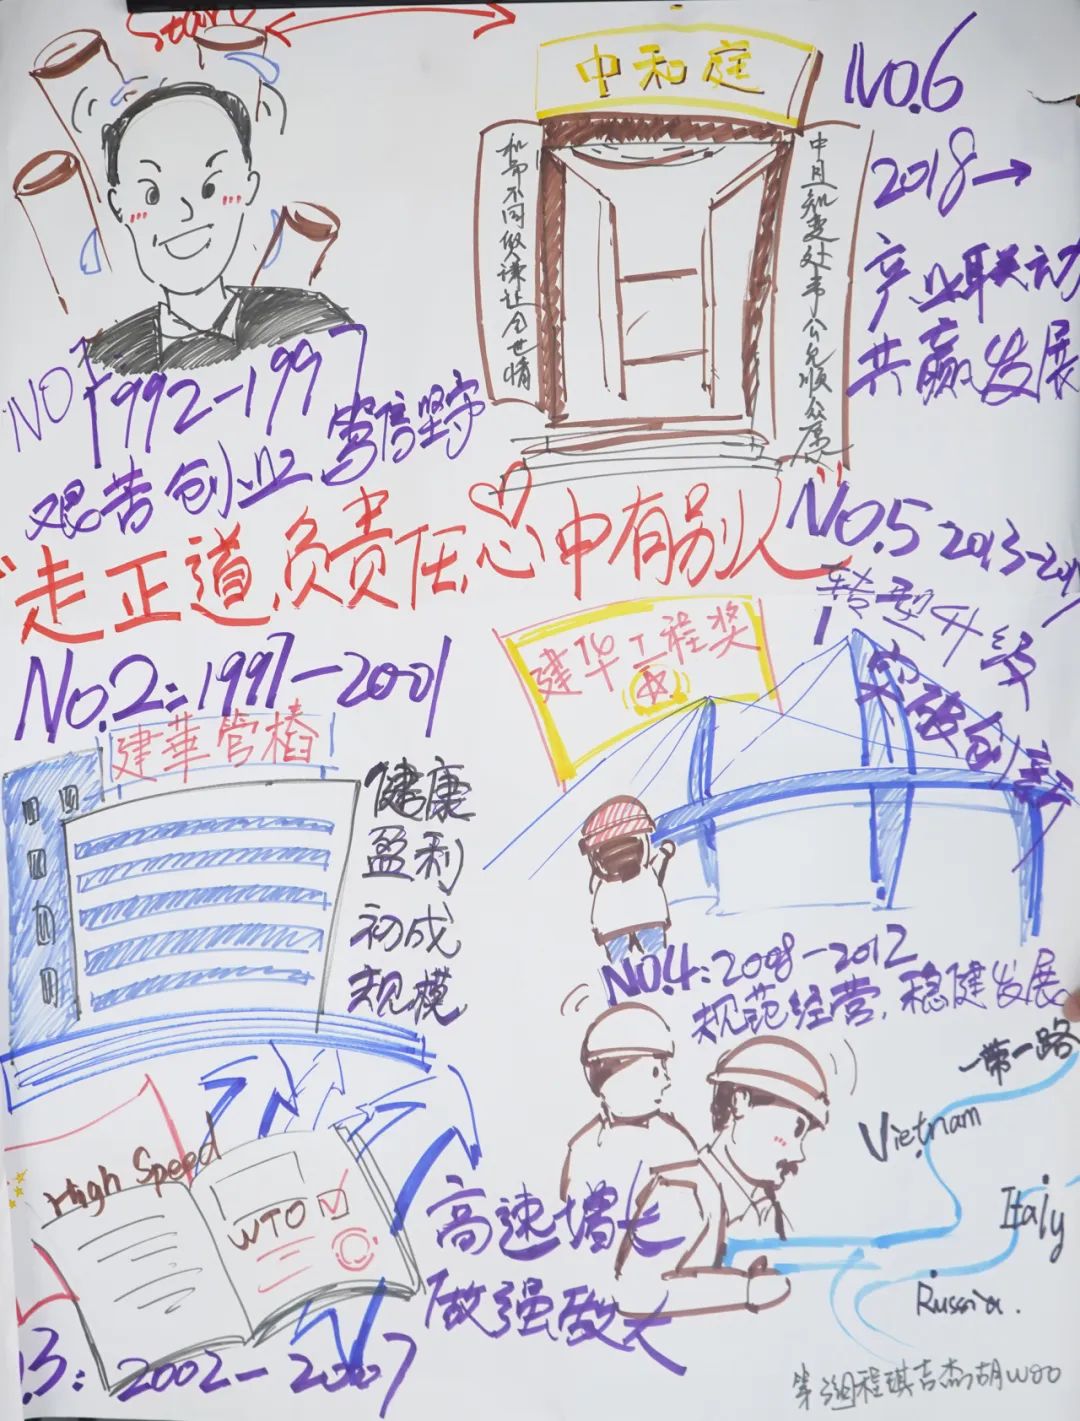 Start
中和庭
NO.6
2018→
产业联动
共赢发展
和而不同做谦让合世情
中且知变处事公允顺众意
NO1
1992-1997
艰苦创业 笃信坚守
"走正道,负责任,心中有别人"
NO.5 2013-2017
转型升级
突破创新
建华工程奖
NO.2:1997-2001
建華管樁
健康
盈利
初成
规模
NO.4:2008-2012
规范经营,稳健发展
一带一路
Vietnam
Italy
Russia.
High Speed
WTO
高速增长
做强做大
.3: 2002-2007